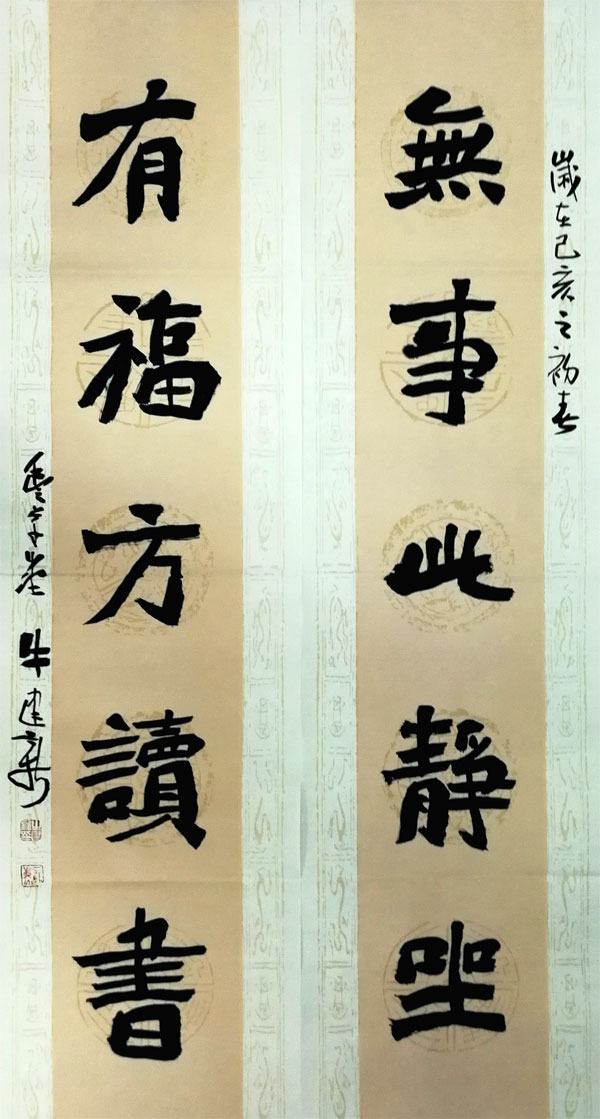 歲在己亥之初春
無事此靜坐
有福方讀書
牛建新